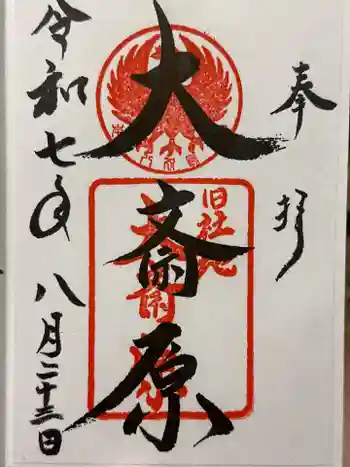 奉拝
大斎原
旧社地
令和七年八月二十三日